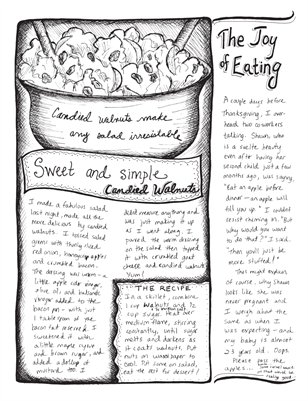 Candied walnuts make
any salad irresistable
Sweet and simple
Candied Walnuts
I made a fabulous salad
last night, made all the
more delicious by candied
walnuts. I tossed salad
greens with thinly sliced
red onion, apples
and crumbled bacon.
The dressing was warm - a
little apple cider vinegar,
olive oil and balsamic
vinegar added to the
bacon pan - with just
1 tablespoon of the
bacon fat reserved. I
sweetened it with
a little maple syrup
and brown sugar, and
added a dollop of
mustard too. I
didn't measure anything and
was just making it up
as I went along. I
poured the warm dressing
on the salad then topped
it with crumbled goat
cheese and candied walnuts.
Yum!
THE RECIPE
In a skillet, combine
1 cup walnuts and 1/2
cup sugar. Heat over
medium flame, stirring
constantly until sugar
melts and darkens as
it coats walnuts. Put
nuts on waxed paper to
cool. Put some on salad,
eat the rest for dessert!
The Joy
of Eating
A couple days before
Thanksgiving, I over-
heard two coworkers
talking. Shawn, who
is a svelte beauty
even after having her
second child just a few
months ago, was saying,
"Eat an apple before
dinner - an apple will
fill you up." I couldn't
resist chiming in. "But
why would you want
to do that?" I said.
"Then you'll just be
more stuffed!"
That might explain
of course, why Shawn
looks like she was
never pregnant and
I weigh about the
same as when I
was expecting - and
my baby is almost
23 years old. Oops.
Please pass the
apples...